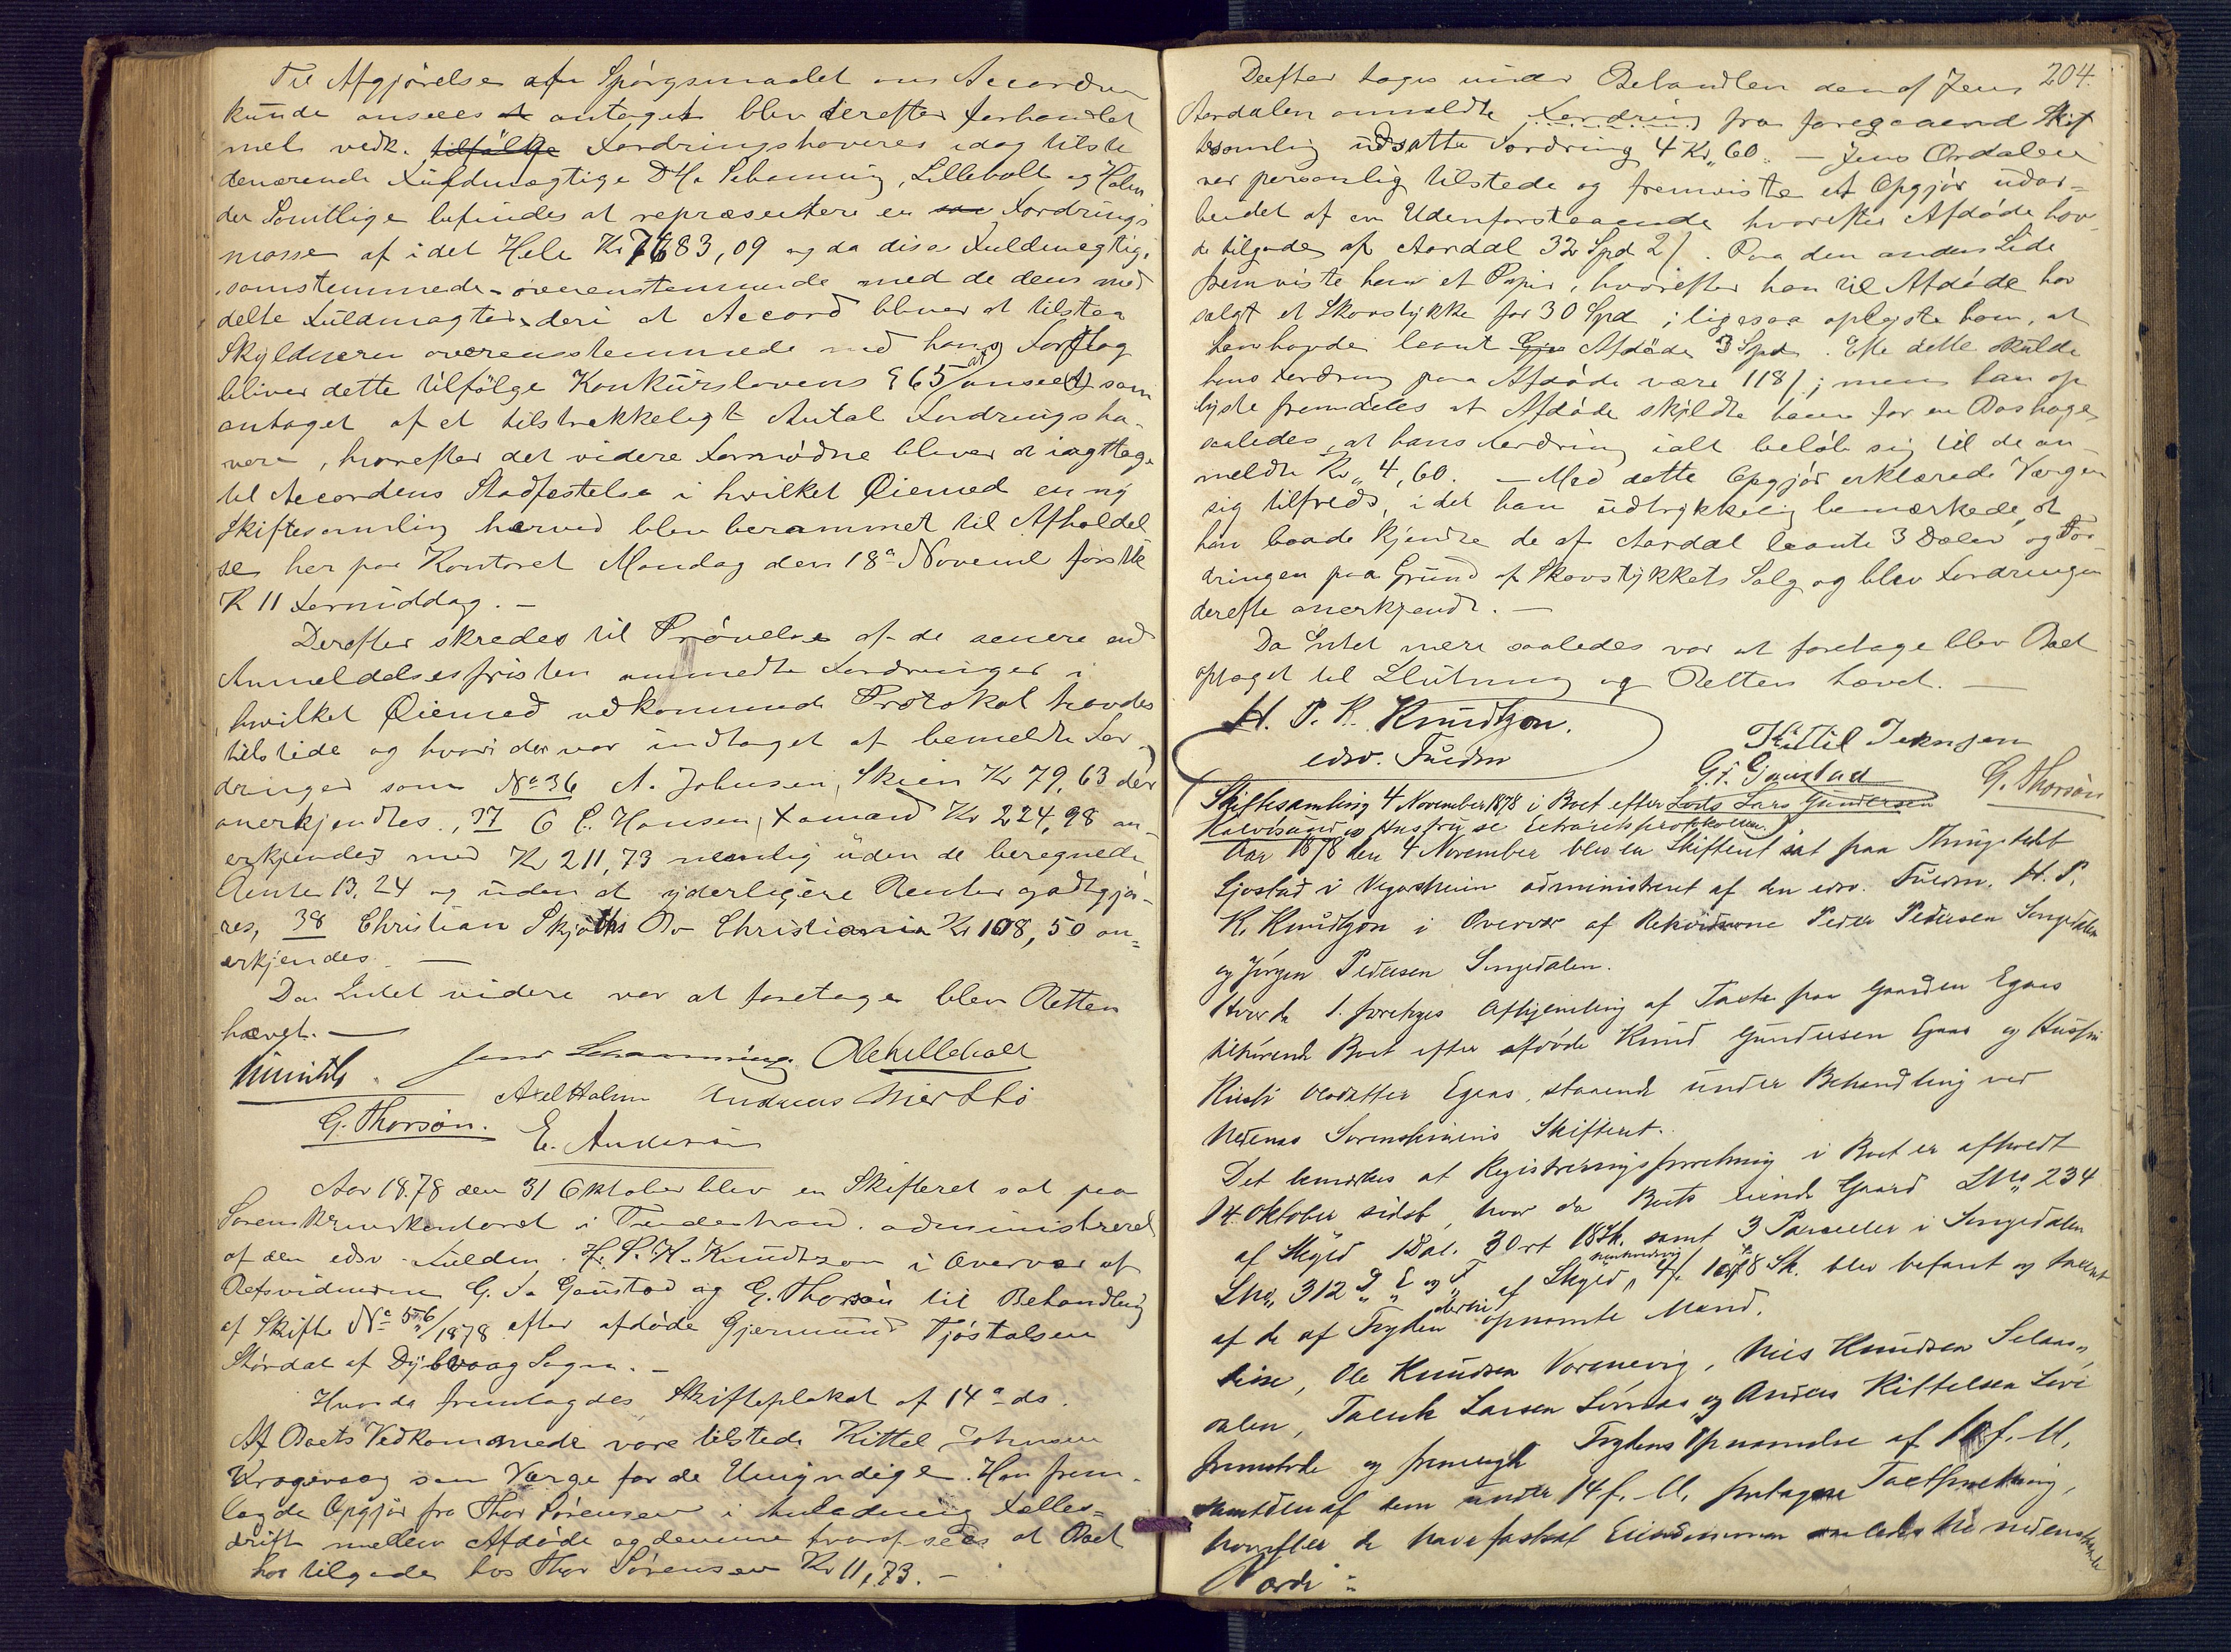 Til Afgjørelse af Spørgsmaalet om Accorden
kunde ansees antaget blev derefter forhandlet
med vedk. tilfølge Fordringshaveres idag tilste
deværende Fuldmægtige DHr Schanning, Lillebolt og Holm
der Samtlige befindes at repræsentere en Fordrings
masse af i det Hele Kr 7683,09 og da disse Fuldmægtige
samstemmede overenstemmende med de dem med
delte Fuldmagter deri at Accord bliver at tilstaa
Skyldneren overensstemmede med hans Forslag
bliver dette tilfølge Konkurslovens § 65 at anse(et) som
antaget af et tilstrækkeligt Antal Fordringsha-
vere, hvorefter det videre Fornødne bliver at iagttage
til Accordens Stadfæstelse i hvilket Øiemed en ny
Skiftesamling herved blev berammet til Afholdel
se her paa Kontoret Mandag den 18de Novembr førstk
Kl 11 Formiddag. —
Derefter skredes til Prøvelse af de senere end
Anmeldelsesfristen anmeldte Fordringer i
hvilket Øiemed vedkommende Protokol havdes
tilstede og hvori der var indtaget af bemeldte For
dringer som No 36 A. Johnsen, Skien Kr 79,63 der
anerkjendtes., 37 C. Hansen, Kr 224,98 an-
erkjendes med Kr 211,73 nemlig uden de beregnede
Renter 13,24 og uden at yderligere Renter godtgjø-
res, 38 Christian Christiania Kr 108,50 an=
erkjendes. —
Da Intet videre var at foretage blev Retten
hævet. —
Jens Schanning. Ole Lillebolt
Axel Holm Andreas
G. Thorsøn. E. Anderson
Aar 1878 den 31 Oktober blev en Skifteret sat paa
Sorenskriverkontoret i Tvedestrand administreret
af den edsv. Fuldm. H. P. K. Knudtzon i Overvær af
Retsvidnerne G. Gaustad og G. Thorsøn til Behandling
af Skifte No 56/1878 efter afdøde Gjermund Tjøstolsen
Stordal af Dybvaag Sogn. —
Hvorda fremlagdes Skifteplakat af 14de ds.
Af Boets Vedkommende vare tilstede Kittel Johnsen
Krogevaag som Værge for de Umyndige. Han frem-
lagde Opgjør fra Thor Sørensen i Anledning Fælles=
drift mellem Afdøde og denne hvoraf sees at Boet
har tilgode hos Thor Sørensen Kr 11,73. —
204.
Derefter toges under Behandlen den af Jens
Aardalen anmeldte Fordring fra foregaaend Skif
tesamling udsatte Fordring 4 Kr 60. — Jens Ordalen
var personlig tilstede og fremviste et Opgjør udar-
beidet af en Udenforstaaende hvorefter Afdøde hav
de tilgode af Aardal 32 Spd 2/. Paa den anden Side
fremviste han et Papir, hvorefter han til Afdøde har
solgt et Skovstykke for 30 Spd; ligesaa oplyste han, at
han havde laant Afdøde 3 Spd. Efter dette skulde
hans Fordring paa Afdøde være 118/; men han op
lyste fremdeles at Afdøde skyldte ham for en
saaledes, at hans Fordring ialt beløb sig til de an
meldte Kr 4,60. — Med dette Opgjør erklærede Værgen
sig tilfreds, idet han udtrykkelig bemærkede, at
han baade kjendte de af Aardal laante 3 Daler og For
dringen paa Grund af Skovstykkets Salg og blev Fordringen
derefter anerkjendt. —
Da Intet mere saaledes var at foretage blev Boet
optaget til Slutning og Retten hævet. —
H. P. K. Knudtzon.
edsv. Fuldm
Kittil Johnsen
G. Gaustad G. Thorsøn
Skiftesamling 4 November 1878 i Boet efter Lods Lars Gundersen
Hustru se Extraretsprotokollen.
Aar 1878 den 4 November blev en Skifteret sat paa Thingstedet
Sjostad i Vegarsheien administreret af den edsv. Fuldm. H. P.
K. Knudtzon i Overvær af Retsvidnerne Peder Pedersen Songedalen
og Jørgen Pedersen Songedalen.
Hvorda 1. foretoges Afhjemling af Taxt paa Gaarden Egaas
tilhørende Boet efter afdøde Knud Gundersen Egaas og Hustru
Olsdatter Egaas, staaende under Behandling ved
Nedenæs Sorenskriveris Skifteret.
Det bemærkes at Registreringsforretning i Boet er afholdt
14 Oktober sidst, hvor da Boets eiende Gaard LNo 234
af Skyld 1 Dal. 3 Ort 18 Sk. samt 3 Parceller i Songedalen
LNo 312 af Skyld 8 Sk. blev befaret og taxeret
af de af Fogden dertil opnævnte Mænd.
Disse, Ole Knudsen Vormevig, Niels Knudsen Selaas-
dalen, Larsen og Anders Kittelsen
fremstode og fremlagde Fogdens Opnævnelse af 10 f. M.
samt den af dem under 14 f. M. foretagne Taxtforretning,
hvorefter de have fastsat Eiendommen saaledes til nedenstaaende
Værdi: